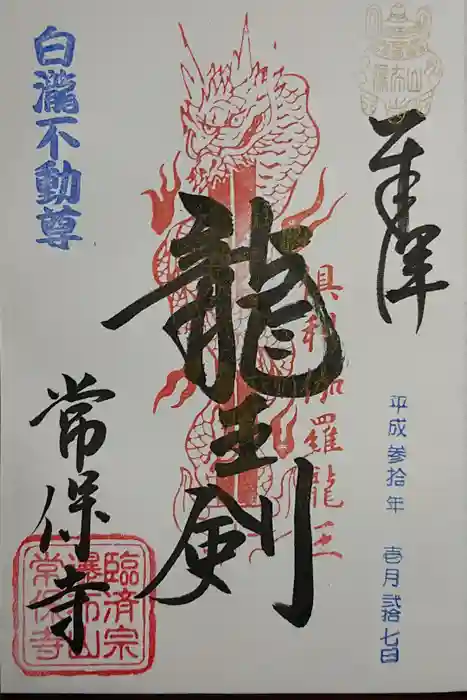 奉拝
平成参拾年 壱月弐拾七日
倶利伽羅龍王
龍王剣
白瀧不動尊
常保寺
臨済宗
瀑布山
常保寺